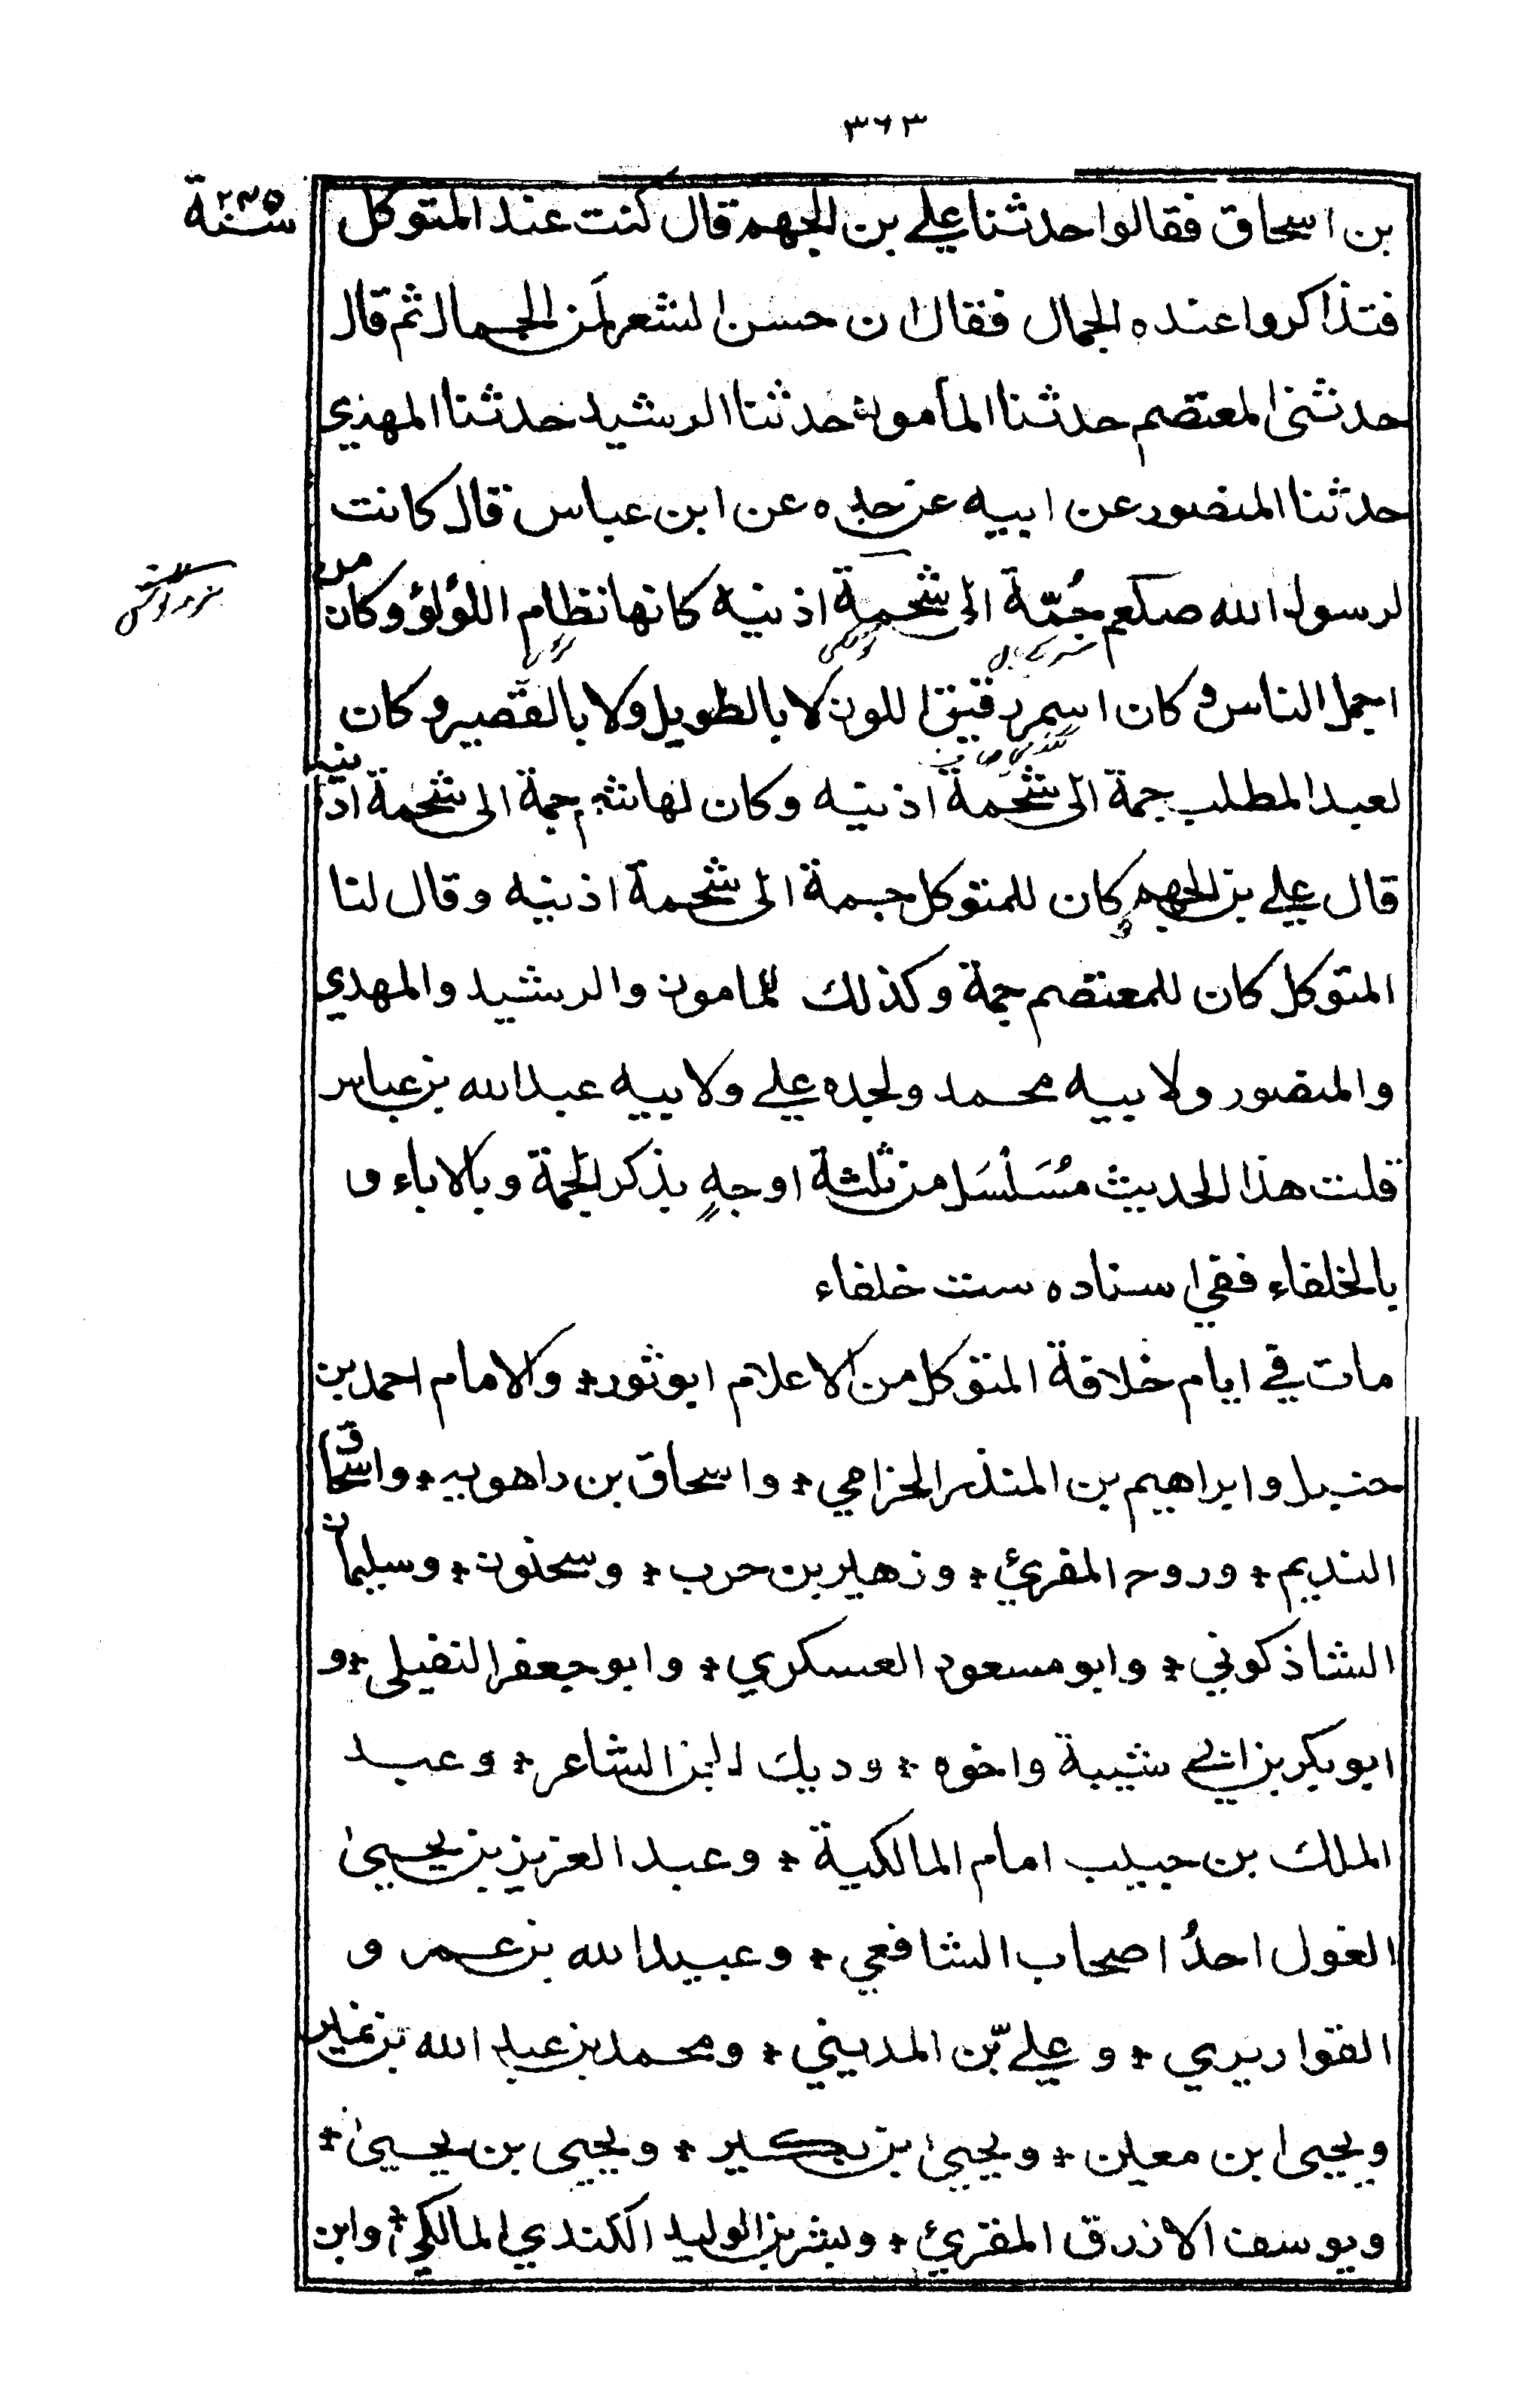 ٣٦٣
سنة ٢٣٥
بن اسحاق فقالوا حدثنا علي بن الجهم قال كنت عند المتوكل
فتذاكروا عنده الجمال فقال ان حسن الشعر لمن الجمال ثم قال
حدثني المعتصم حدثنا المأمون حدثنا الرشيد حدثنا المهدي
حدثنا المنصور عن ابيه عن جده عن ابن عباس قال كانت
لرسول الله صلعم جُمّة الى شحمة اذنيه كانها نظام اللؤلؤ وكان من
اجمل الناس وكان اسمر رقيق اللون لا بالطويل ولا بالقصير وكان
لعبد المطلب جمة الى شحمة اذنيه وكان لهاشم جمة الى شحمة اذنيه
قال علي بن الجهم وكان للمتوكل جمة الى شحمة اذنيه وقال لنا
المتوكل كان للمعتصم جمة وكذلك للمامون والرشيد والمهدي
والمنصور ولابيه محمد ولجده علي ولابيه عبد الله بن عباس
قلت هذا الحديث مُسَلْسَل من ثلثة اوجهٍ بذكر الجمة وبالاباء و
بالخلفاء ففي اسناده ست خلفاء
مات في ايام خلافة المتوكل من الاعلام ابو ثور * والامام احمد بن
حنبل وابراهيم بن المنذر الحزامي * واسحاق بن راهويه * واسحاق
النديم * وروح المقرئ * وزهير بن حرب * وسحنون * وسليمان
الشاذكوني * وابو مسعود العسكري * وابو جعفر النفيلي * و
ابو بكر بن ابي شيبة واخوه * وديك الجن الشاعر * وعبد
الملك بن حبيب امام المالكية * وعبد العزيز بن يحيىٰ
الغول احدُ اصحاب الشافعي * وعبيد الله بن عمر و
القواريري * وعلي بن المديني * ومحمد بن عبد الله بن نمير
ويحيى ابن معين * ويحيىٰ بن بكير * ويحيى بن يحيىٰ *
ويوسف الازرق المقرئ * وبشر بن الوليد الكندي المالكي * وابن